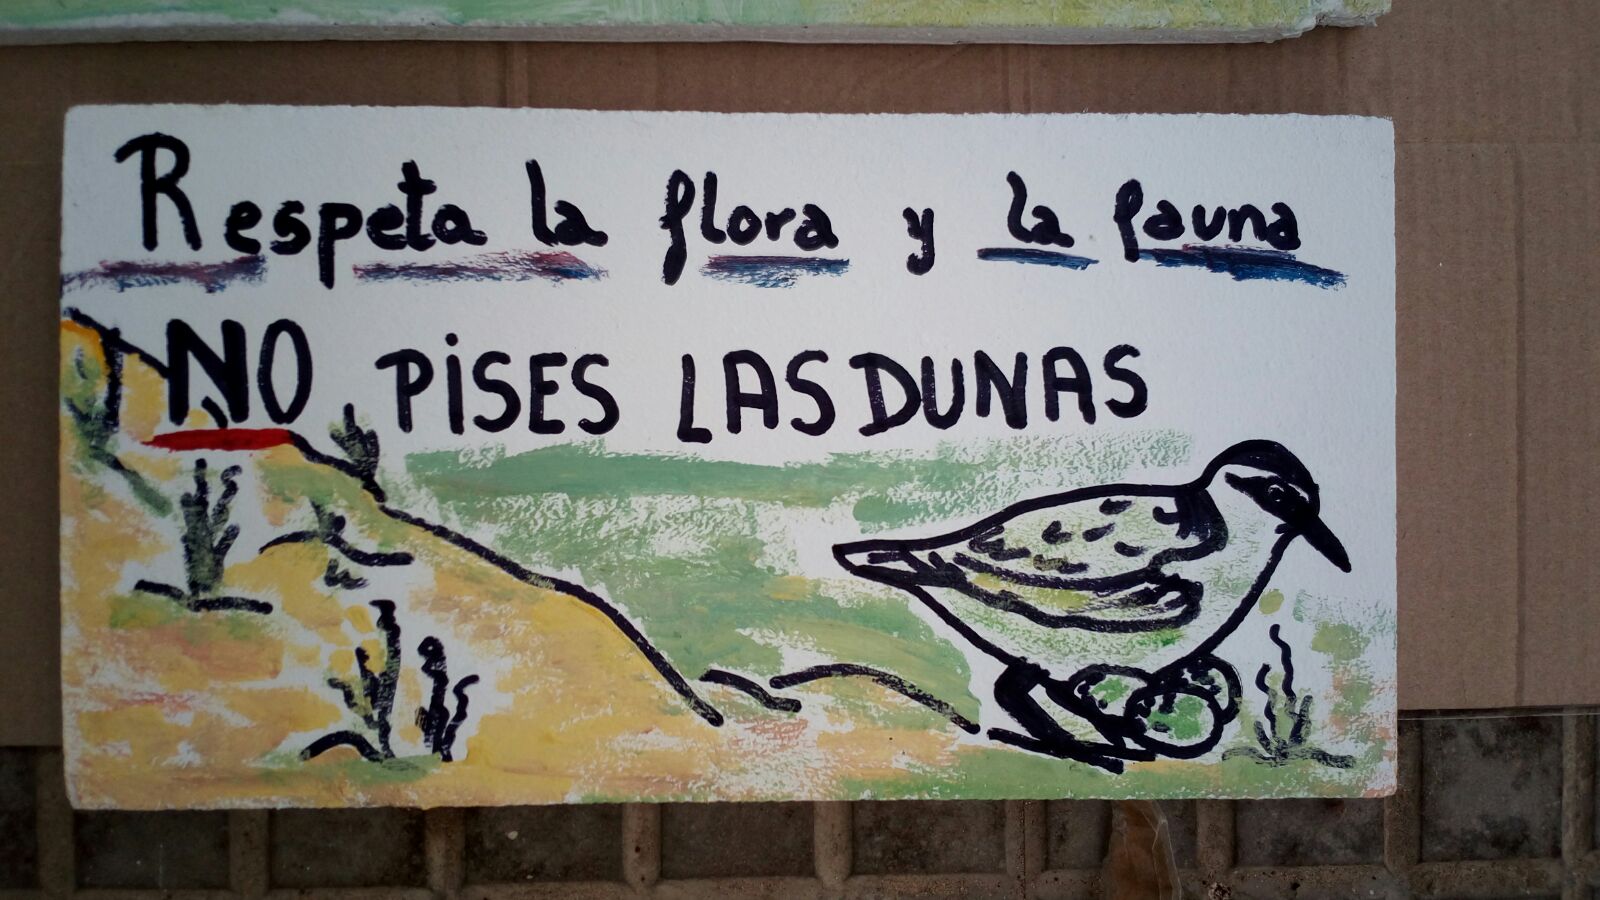 Respeta la flora y la fauna
NO PISES LAS DUNAS